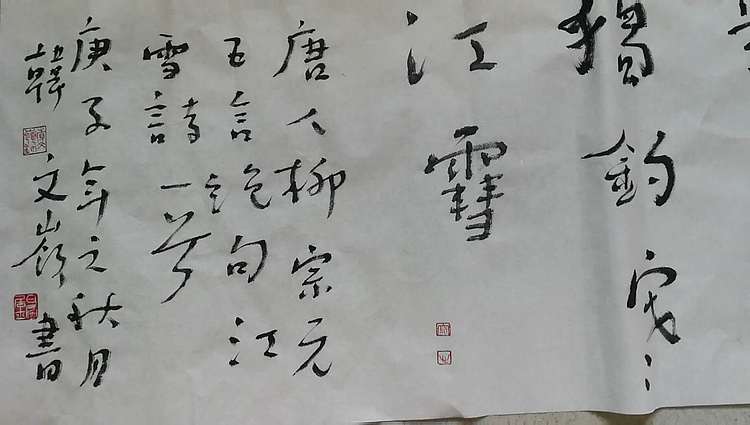 獨釣寒
江雪
唐人柳宗元
五言絕句江
雪詩一首
庚子年之秋月
韓文嶺書